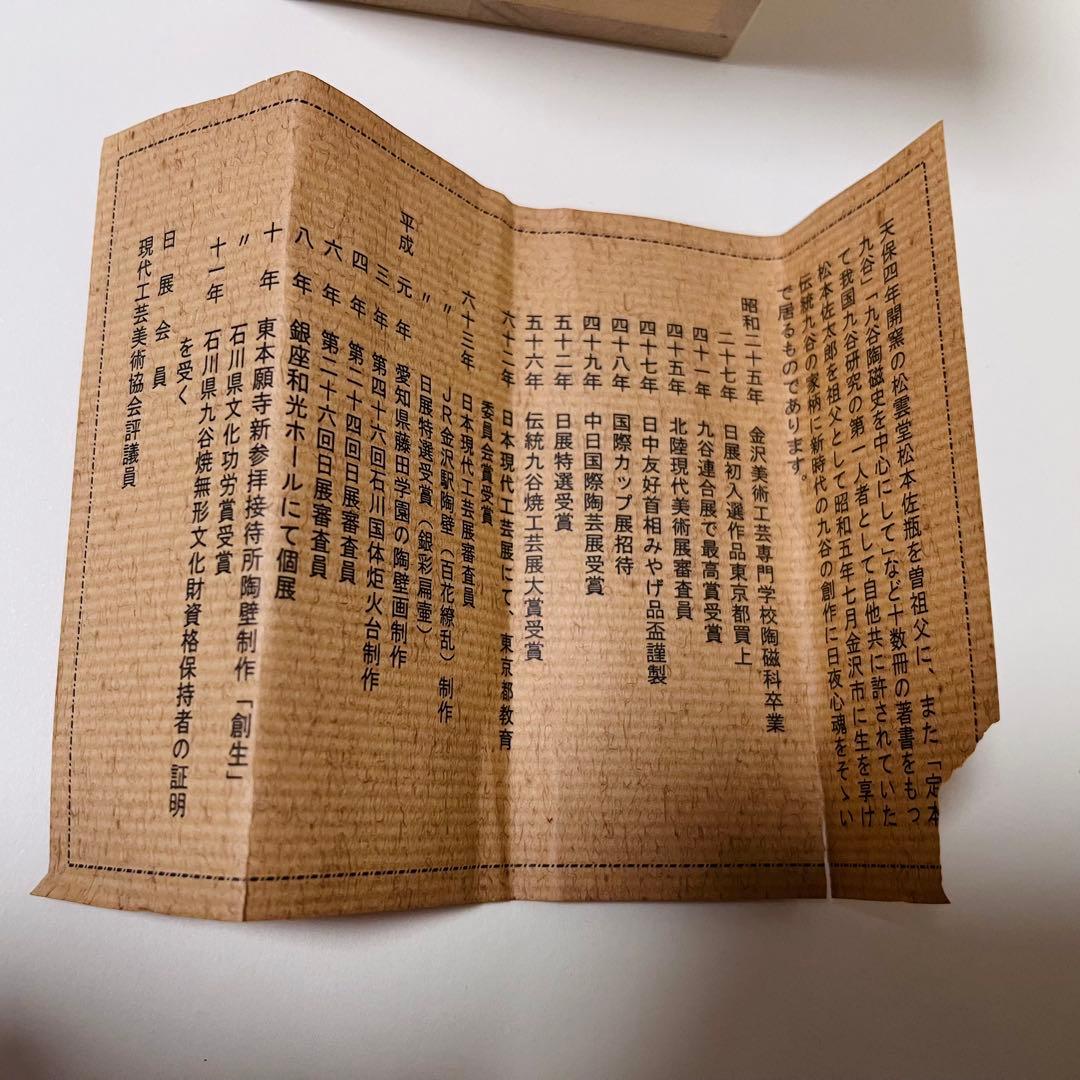 天保四年開窯の松雲堂松本佐瓶を曽祖父に、また「定本
九谷」「九谷陶磁史を中心にして」など十数冊の著書をもっ
て我国九谷研究の第一人者として自他共に許されていた
松本佐太郎を祖父として昭和五年七月金沢市に生を享け
伝統九谷の家柄に新時代の九谷の創作に日夜心魂をそゝい
で居るものであります。
昭和二十五年 金沢美術工芸専門学校陶磁科卒業
二十七年 日展初入選作品東京都買上
四十一年 九谷連合展で最高賞受賞
四十五年 北陸現代美術展審査員
四十七年 日中友好首相みやげ品盃謹製
四十八年 国際カップ展招待
四十九年 中日国際陶芸展受賞
五十二年 日展特選受賞
五十六年 伝統九谷焼工芸展大賞受賞
六十二年 日本現代工芸展にて、東京都教育
委員会賞受賞
六十三年 日本現代工芸展審査員
〃 JR金沢駅陶壁(百花繚乱)制作
〃 日展特選受賞(銀彩扁壷)
平成元年 愛知県藤田学園の陶壁画制作
三年 第四十六回石川国体炬火台制作
四年 第二十四回日展審査員
六年 第二十六回日展審査員
八年 銀座和光ホールにて個展
十年 東本願寺新参拝接待所陶壁制作「創生」
〃 石川県文化功労賞受賞
十一年 石川県九谷焼無形文化財資格保持者の証明
を受く
日展会員
現代工芸美術協会評議員